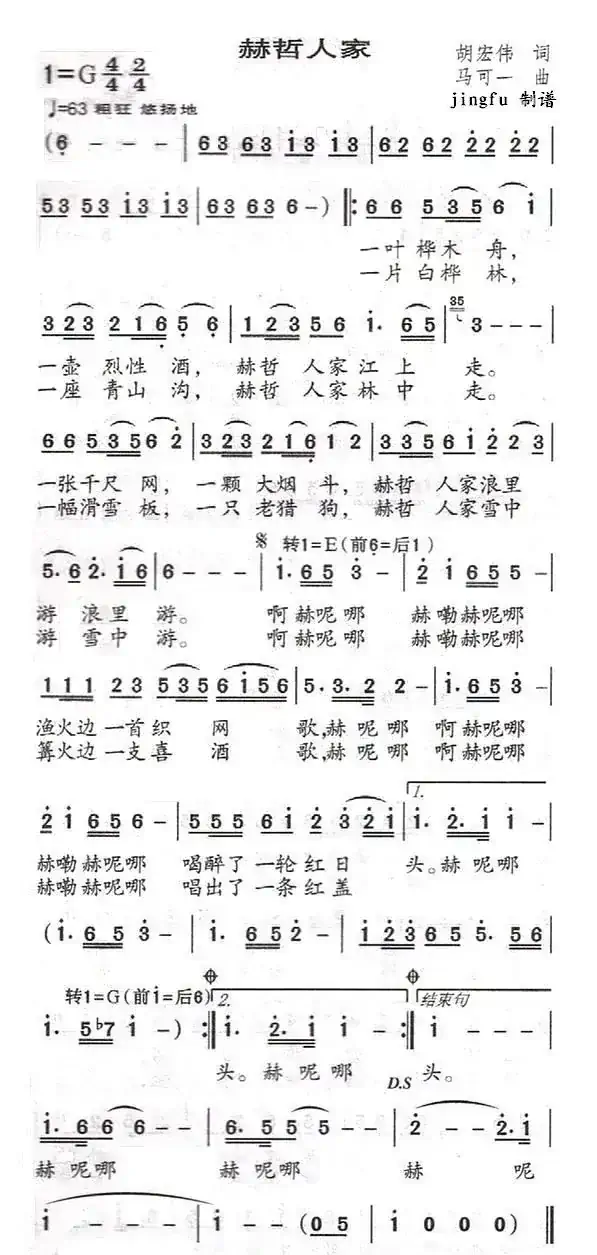 赫哲人家
胡宏伟 词
1=G 4/4 2/4
马可一 曲
jingfu 制谱
♩=63 粗犷 悠扬地
(6̣ - - - | 63 63 i3 i3 | 62 62 22 22 |
53 53 i3 i3 | 63 63 6 -) ‖: 66 535 6 i |
一叶 桦木 舟,
一片 白桦 林,
3 23 2 16 5 6 | 1 23 56 i· 65 | 35 3 - - - |
一壶 烈性 酒, 赫哲 人家江上 走。
一座 青山 沟, 赫哲 人家林中 走。
66 535 6 2 | 3 23 2 16 12 | 3 35 6i 2 23 |
一张千尺 网, 一颗 大烟 斗, 赫哲 人家浪里
一幅滑雪 板, 一只 老猎 狗, 赫哲 人家雪中
转1=E(前6=后1)
5·6 2·i6 | 6 - - - | i·65 3 - | 2 i 65 5 - |
游 浪里 游。 啊赫呢哪 赫嘞赫呢哪
游 雪中 游。 啊赫呢哪 赫嘞赫呢哪
111 23 535 6i56 | 5·3·2 2 - | i·65 3 - |
渔火边一首织 网 歌,赫呢哪 啊赫呢哪
篝火边一支喜 酒 歌,赫呢哪 啊赫呢哪
1.
2 i 65 6 - | 555 6i 23 2i | i· 2·i i - |
赫嘞赫呢哪 喝醉了一轮红日 头。赫呢哪
赫嘞赫呢哪 唱出了一条红盖
(i·65 3 - | i· 65 2 - | i23 65 5· 56 |
转1=G(前i=后6) 2. 结束句
i· 5♭7 i -) :‖ i· 2·i i - :‖ i - - - |
头。赫呢哪 D.S 头。
i·66 6 - - | 6·55 5 - - | 2 - - 2·i |
赫呢哪 赫呢哪 赫 呢
i - - - | i - - (05 | i 0 0 0) ‖